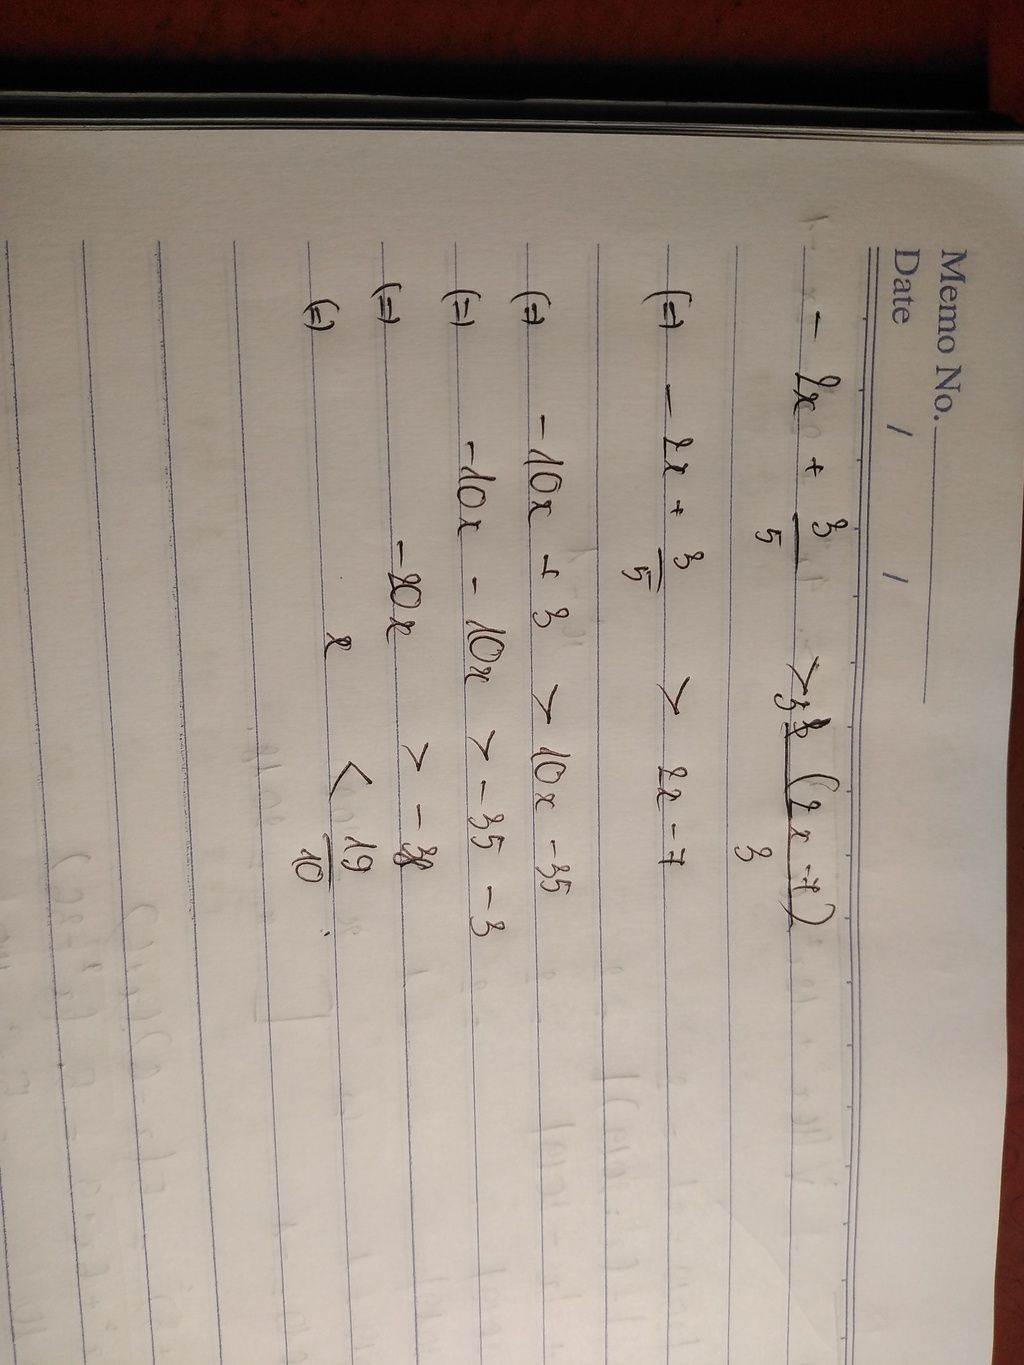 Memo No.
Date / /
- 2x + 3/5 > 3(2x - 7)/3
(=) - 2x + 3/5 > 2x - 7
(=) -10x + 3 > 10x - 35
(=) -10x - 10x > -35 - 3
(=) -20x > -38
(=) x < 19/10